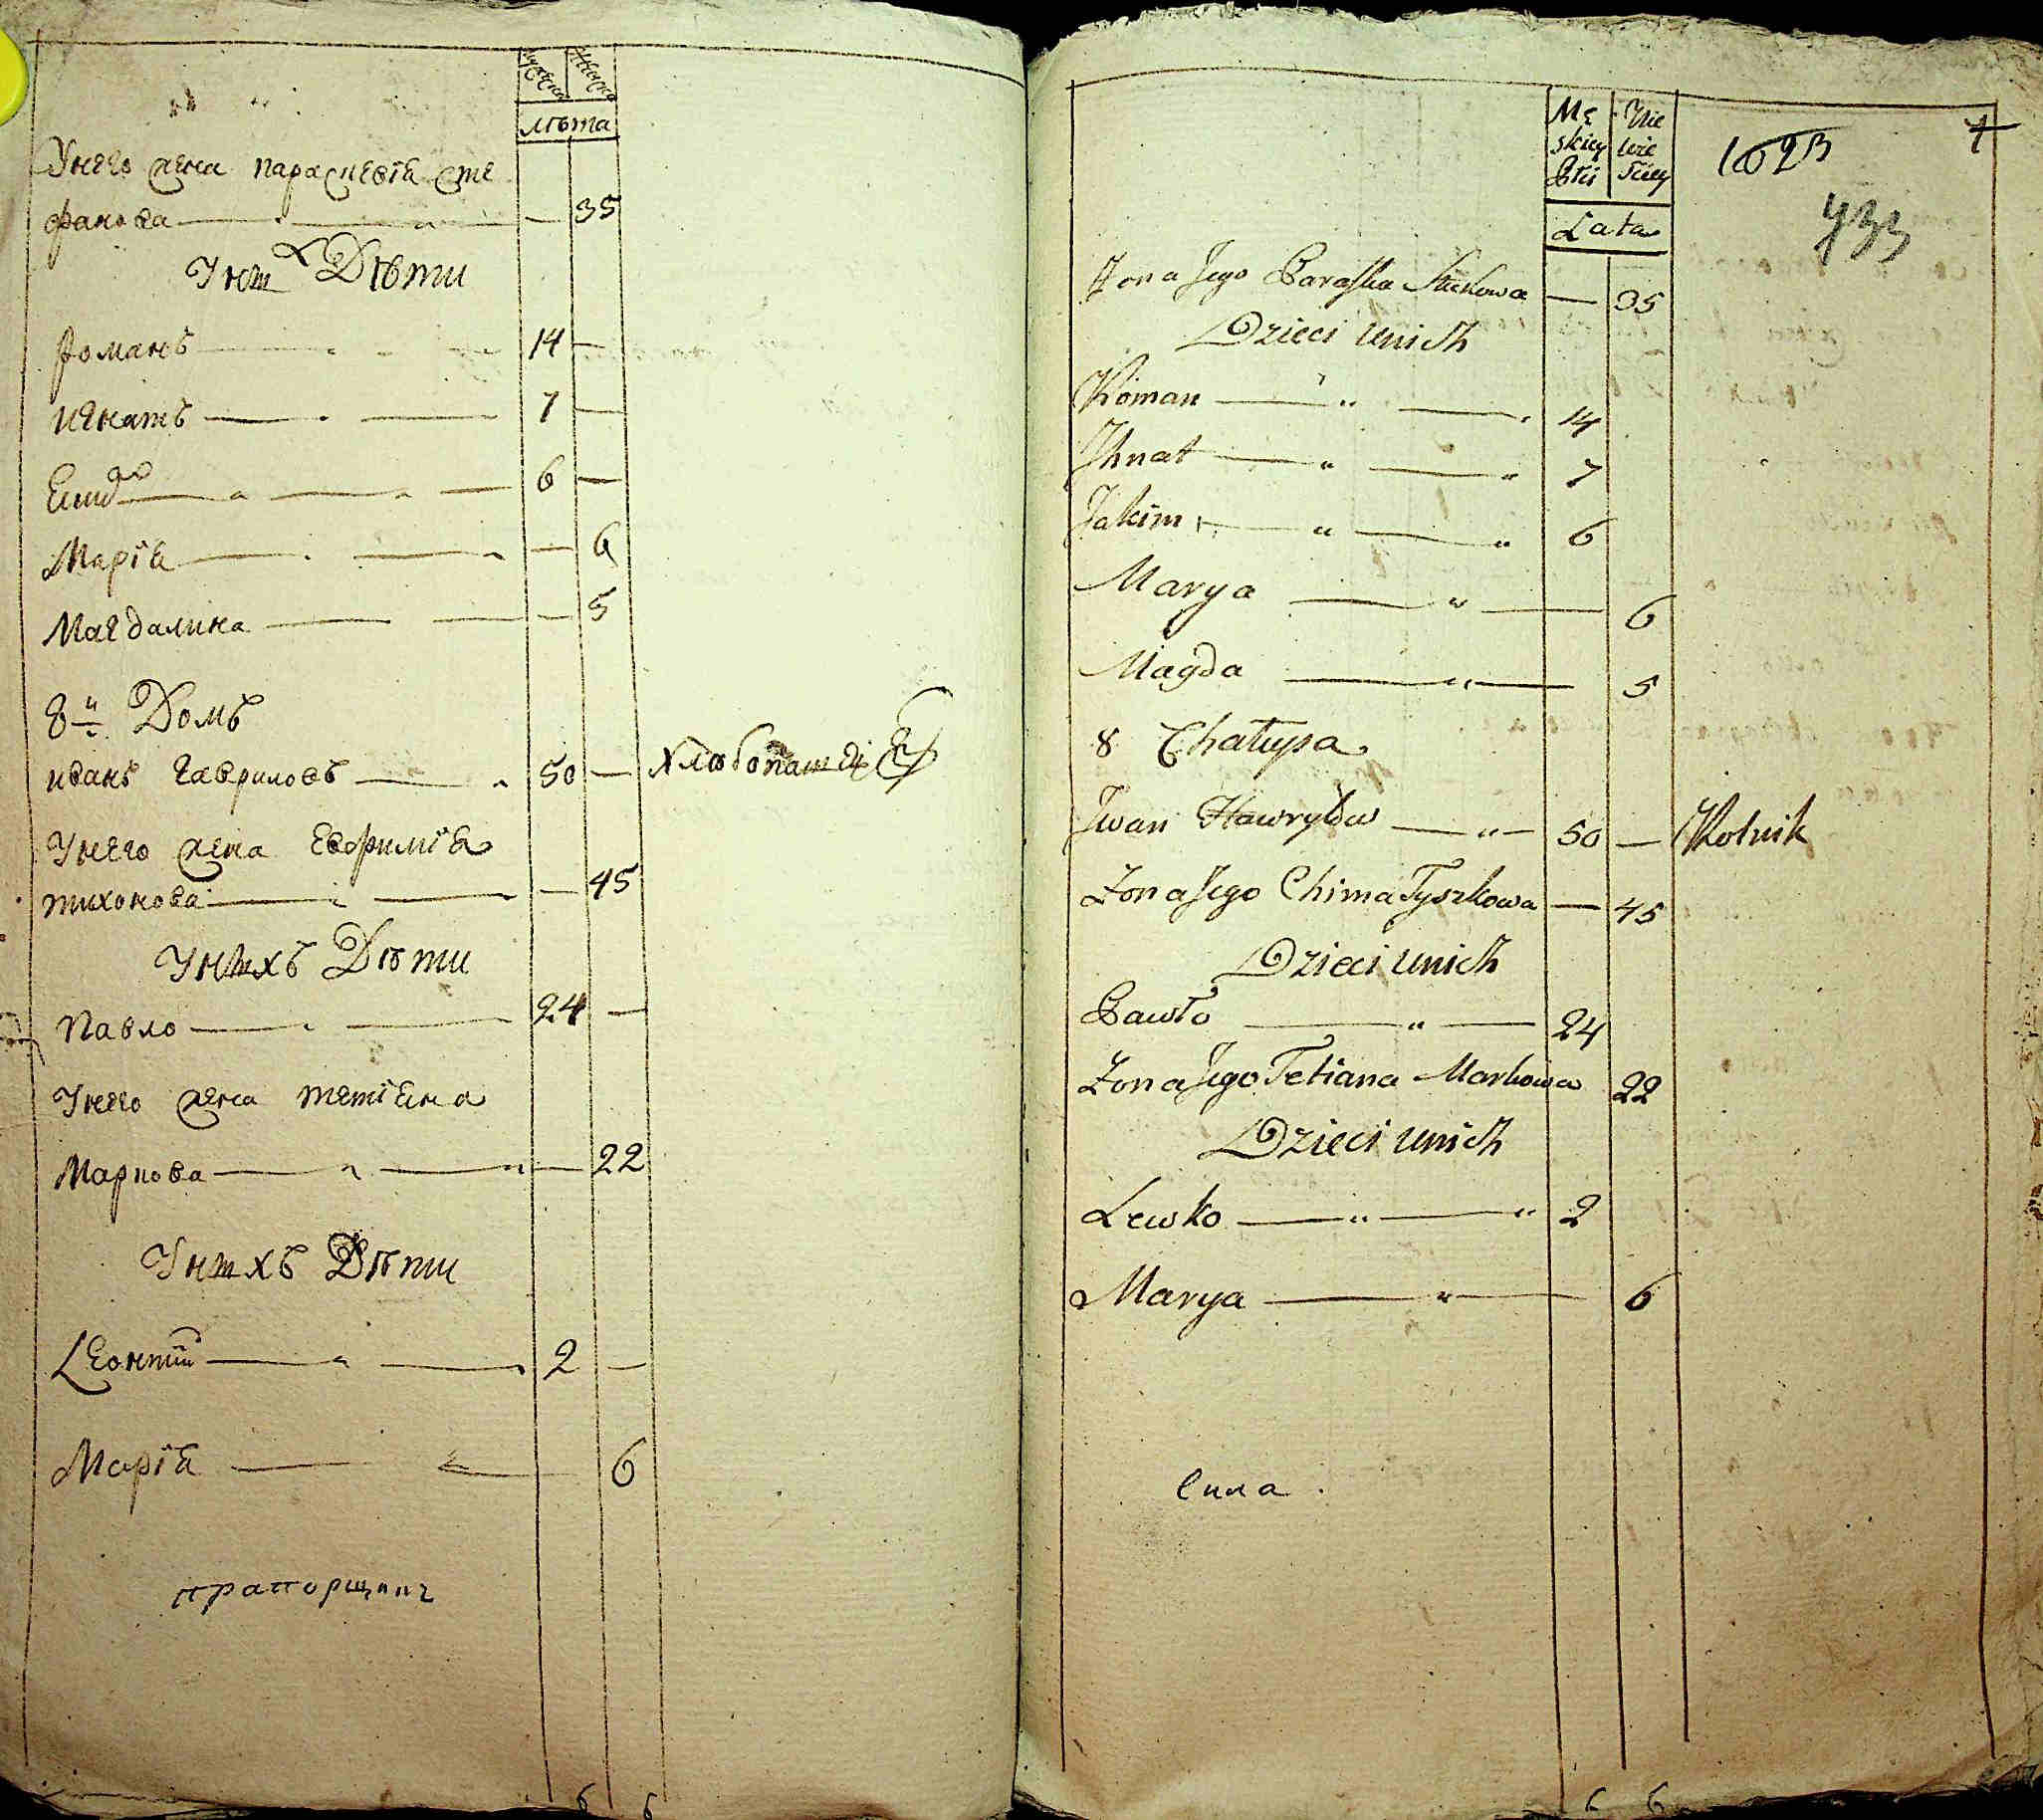 Мужеска Женска
лѣта
Унего жена параскевiя сте
фанова — — 35
Унихъ Дѣти
романъ — 14 —
игнатъ — 7 —
Еким — 6 —
Марiя — — 6
Магдалина — — 5
8й Домъ
иванъ гавриловъ — 50 — хлѣбопашец
Унего жена Евфимiя
тихонова — — 45
Унихъ Дѣти
Павло — 24 —
Унего жена тетiяна
Маркова — — 22
Унихъ Дѣти
Леонтiй — 2 —
Марiя — 6
прапорщикъ
6 6
Mę Nie
skiey wie
Płci sciey
Lata
1023
1
433
Zona Jego Paraska Stechowa — 35
Dzieci unich
Roman — 14
Ihnat — 7
Jakim — 6
Marya — 6
Magda — 5
8 Chałupa
Iwan Hawryłow — 50 — Rolnik
Zona Jego Chima Tyszkowa — 45
Dzieci unich
Pawło — 24
Zona Jego Tetiana Markowa 22
Dzieci unich
Lewko — 2
Marya — 6
Сила.
6 6